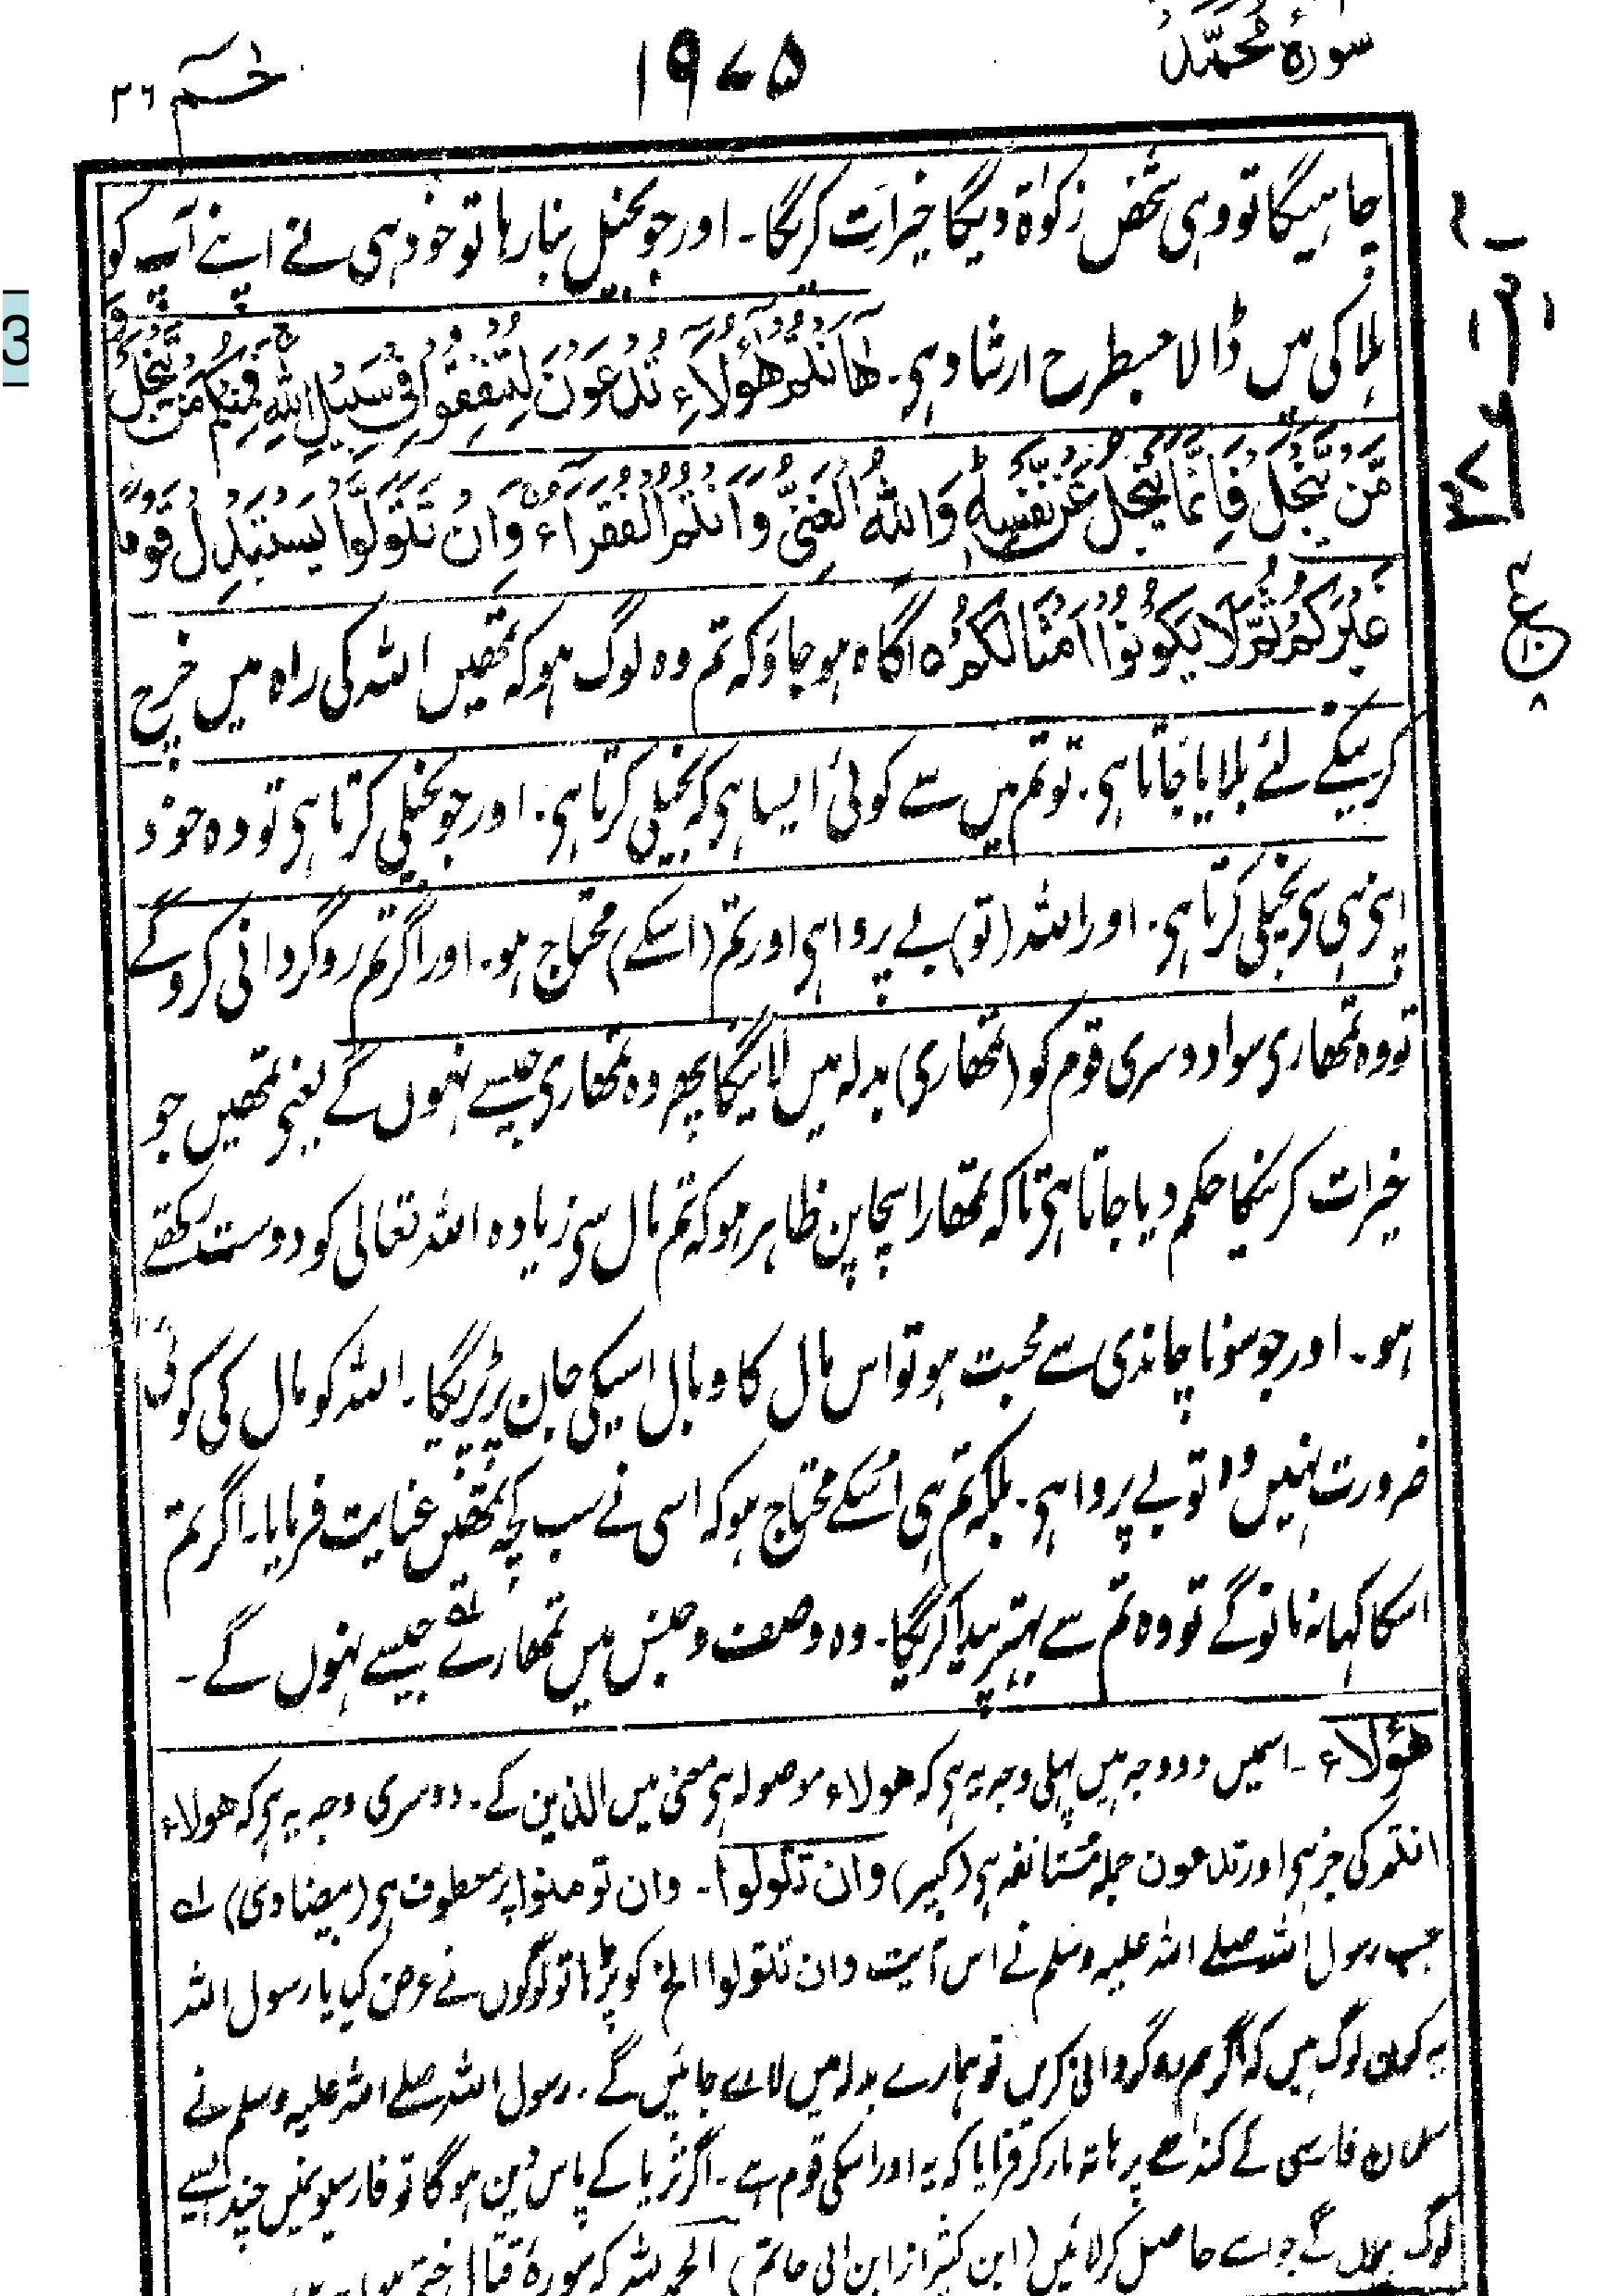 سورۂ محمّد ۱۹۷۵ حٰـمٓ ۲۶
چاہیگا تو وہی شخص زکوٰۃ دیگا خیرات کریگا۔ اور جو بخیل بنا رہا تو خود ہی نے اپنے آپ کو
ہلاکی میں ڈالا جسطرح ارشاد ہی۔ هٰٓاَنْتُمْ هٰٓؤُلَآءِ تُدْعَوْنَ لِتُنْفِقُوْا فِيْ سَبِيْلِ اللّٰهِ فَمِنْكُمْ مَّنْ يَّبْخَلُ وَ
مَنْ يَّبْخَلْ فَاِنَّمَا يَبْخَلُ عَنْ نَّفْسِهٖ وَاللّٰهُ الْغَنِيُّ وَاَنْتُمُ الْفُقَرَآءُ وَاِنْ تَتَوَلَّوْا يَسْتَبْدِلْ قَوْمًا
غَيْرَكُمْ ثُمَّ لَا يَكُوْنُوْٓا اَمْثَالَكُمْ ہ آگاہ ہو جاؤ کہ تم وہ لوگ ہو کہ تمھیں اللہ کی راہ میں خرچ
کرنیکے لئے بلایا جاتا ہی۔ تو تم میں سے کوئی ایسا ہی کہ بخیلی کرتا ہی۔ اور جو بخیلی کرتا ہی تو وہ خود
اپنی ہی بخیلی کرتا ہی۔ اور اللہ (تو) بے پروا ہی اور تم (اسکے) محتاج ہو۔ اور اگر تم روگردانی کروگے
تو وہ تمھاری سوا دوسری قوم کو (تمھاری) بدلہ میں لائیگا پھر وہ تمھاری جیسے نہوں گے یعنی تمھیں جو
خیرات کرنیکا حکم دیا جاتا ہی تاکہ تمھارا سچا پن ظاہر ہو کہ تم مال سی زیادہ اللہ تعالی کو دوست رکھتے
ہو۔ اور جو سونا چاندی سے محبت ہو تو اس مال کا وبال اسیکی جان پر پڑیگا۔ اللہ کو مال کی کوئی
ضرورت نہیں وہ تو بے پروا ہی۔ بلکہ تم ہی اُسکے محتاج ہو کہ اسی نے سب کچھ تمھیں عنایت فرمایا۔ اگر تم
اسکا کہا نہ مانوگے تو وہ تم سے بہتر پیدا کریگا۔ وہ وصف وجنس میں تمھارے جیسے نہوں گے۔
هٰؤلاء۔ اسمیں دو وجہ ہیں پہلی وجہ یہ ہی کہ هولاء موصولہ ہی معنی میں الذین کے۔ دوسری وجہ یہ ہی کہ هولاء
انتم کی خبر ہی اور تدعون جملہ مستانفہ ہی (کبیر) وان تتولوا۔ وان تومنوا پر معطوف ہی (بیضاوی) لہ
جب رسول اللہ صلے اللہ علیہ وسلم نے اس آیت وان تتولوا الخ کو پڑھا تو لوگوں نے عرض کیا یا رسول اللہ
یہ کون لوگ ہیں کہ اگر ہم روگردانی کریں تو ہمارے بدلہ میں لائے جائیں گے۔ رسول اللہ صلے اللہ علیہ وسلم نے
سلمان فارسی کے کندھے پر ہاتہ مار کر فرمایا کہ یہ اور اسکی قوم ہے۔ اگر ثریا کے پاس دین ہوگا تو فارسیونمیں چند ایسے
لوگ ہوں گے جو اسے حاصل کرلائیں (ابن کثیر از ابن ابی حاتم) الحمد للہ کہ سورۂ قتال ختم
ع
۸